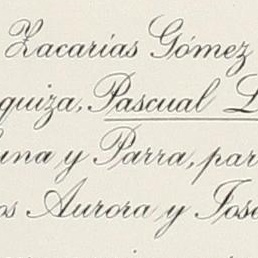 Zacarías Gómez
quiza, Pascual L
una y Parra, par
os Aurora y José